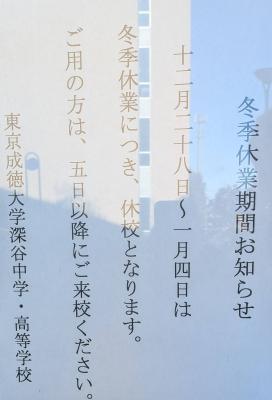 冬季休業期間お知らせ
十二月二十八日～一月四日は
冬季休業につき、休校となります。
ご用の方は、五日以降にご来校ください。
東京成徳大学深谷中学・高等学校